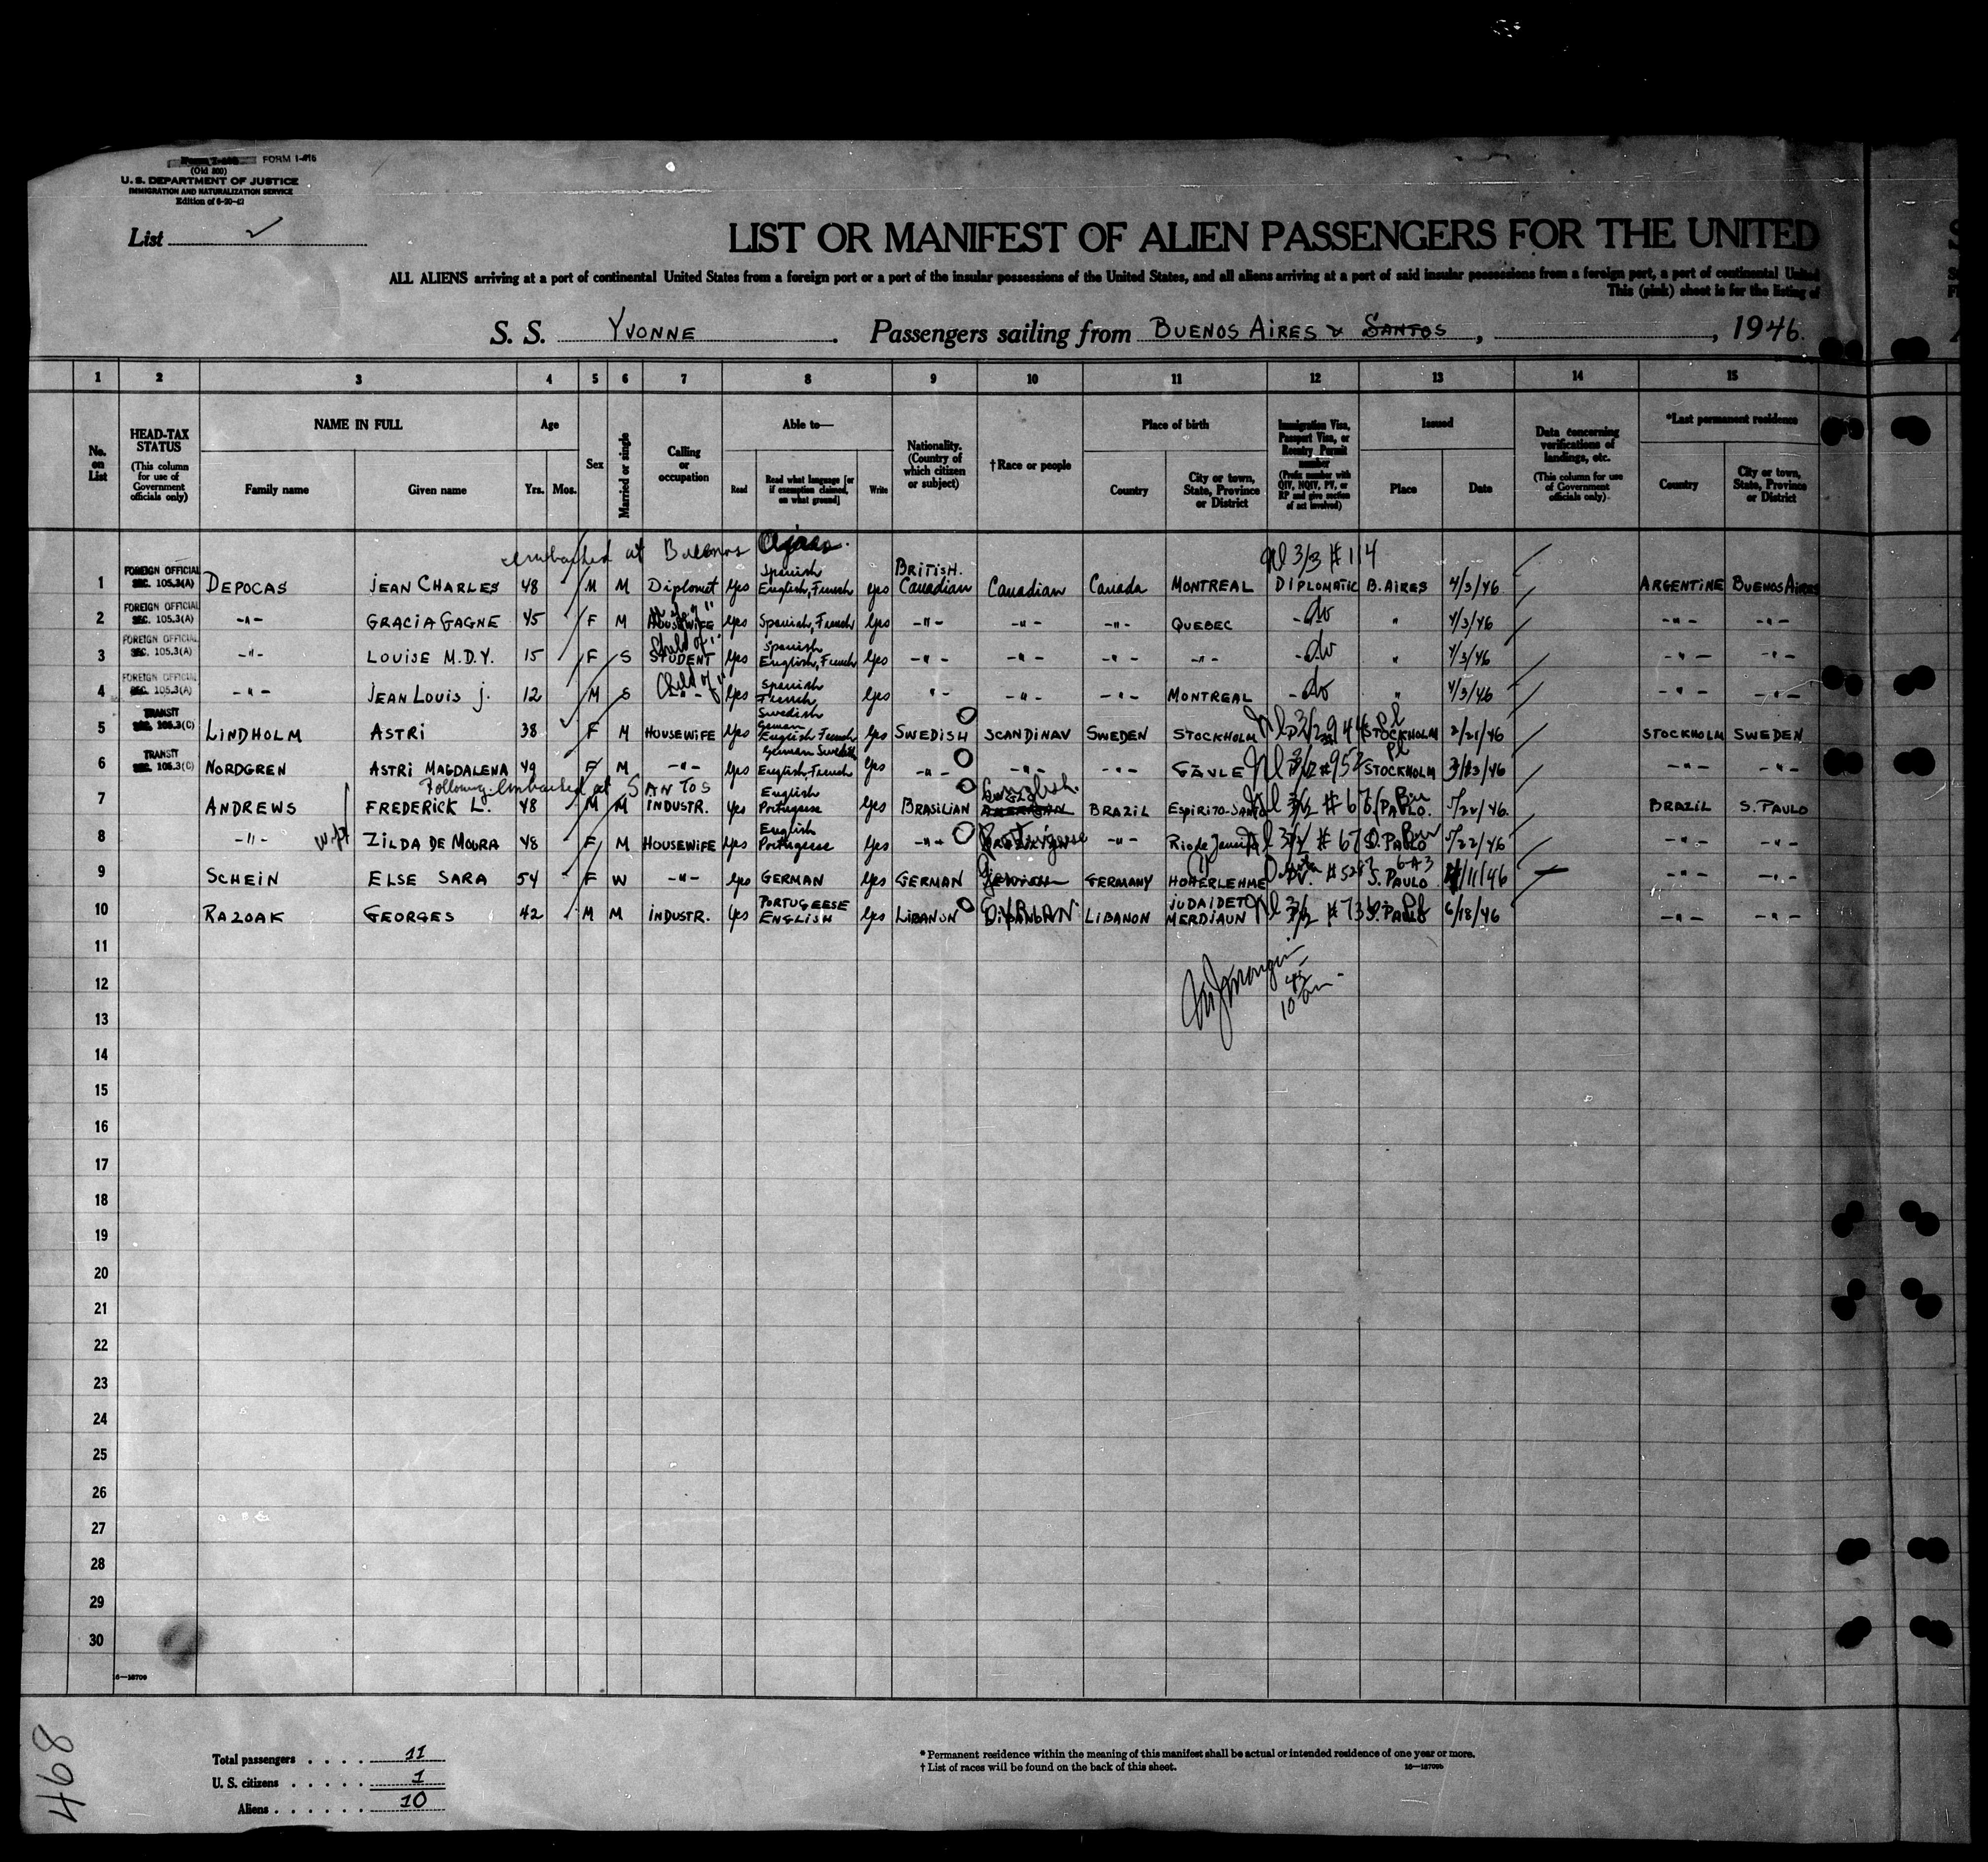 FORM I-415
(Old 500)
U. S. DEPARTMENT OF JUSTICE
IMMIGRATION AND NATURALIZATION SERVICE
List
LIST OR MANIFEST OF ALIEN PASSENGERS FOR THE UNITED
ALL ALIENS arriving at a port of continental United States from a foreign port or a port of the insular possessions of the United States, and all aliens arriving at a port of said insular possessions from a foreign port, a port of continental United
This (pink) sheet is for the listing of
S. S. YVONNE. Passengers sailing from BUENOS AIRES & SANTOS, , 1946.
1 2 3 4 5 6 7 8 9 10 11 12 13 14 15
No. on List
HEAD-TAX STATUS
(This column for use of Government officials only)
NAME IN FULL
Family name Given name
Age
Yrs. Mos.
Sex
Married or single
Calling or occupation
Able to—
Read Read what language [or if exemption claimed, on what ground] Write
Nationality. (Country of which citizen or subject)
†Race or people
Place of birth
Country City or town, State, Province or District
Immigration Visa, Passport Visa, or Reentry Permit number
(Prefix number with QIV, NQIV, PV, or RP and give section of act involved)
Issued
Place Date
Data concerning verifications of landings, etc.
(This column for use of Government officials only).
*Last permanent residence
Country City or town, State, Province or District
embarked at Buenos
3/3 #114
1 FOREIGN OFFICIAL SEC. 105.3(A) DEPOCAS JEAN CHARLES 48 M M Diplomat Yes Spanish English, French yes BRITISH. Canadian Canadian Canada MONTREAL DIPLOMATIC B. AIRES 4/3/46 ARGENTINE BUENOS AIRES
2 FOREIGN OFFICIAL SEC. 105.3(A) -"- GRACIA GAGNE 45 F M HOUSEWIFE Yes Spanish, French Yes -"- -"- -"- QUEBEC -do " 4/3/46 -"- -"-
3 FOREIGN OFFICIAL SEC. 105.3(A) -"- LOUISE M.D.Y. 15 F S Child of " STUDENT Yes Spanish English, French Yes -"- -"- -"- -"- -do " 4/3/46 -"- -"-
4 FOREIGN OFFICIAL SEC. 105.3(A) -"- JEAN LOUIS J. 12 M S Child of " Yes Spanish French Yes "- -"- -"- MONTREAL -do " 4/3/46 -"- -"-
5 TRANSIT SEC. 105.3(C) LINDHOLM ASTRI 38 F M HOUSEWIFE Yes Swedish German English French Yes SWEDISH SCANDINAV SWEDEN STOCKHOLM STOCKHOLM 2/21/46 STOCKHOLM SWEDEN
6 TRANSIT SEC. 105.3(C) NORDGREN ASTRI MAGDALENA 49 F M -"- Yes German Swedish English, French Yes -"- -"- -"- GÄVLE STOCKHOLM -"- -"-
Following embarked at SANTOS
7 ANDREWS FREDERICK L. 48 M M INDUSTR. Yes English Portugese Yes BRASILIAN English BRAZIL ESPIRITO-SANTO PAULO. 5/22/46. BRAZIL S. PAULO
8 wife -"- ZILDA DE MOURA 48 F M HOUSEWIFE Yes English Portugese Yes -"- Portugese -"- Rio de Janeiro S. PAULO 5/22/46 -"- -"-
9 SCHEIN ELSE SARA 54 F W -"- Yes GERMAN Yes GERMAN GERMANY HOHERLEHME S. PAULO -"- -"-
10 RAZOAK GEORGES 42 M M INDUSTR. Yes PORTUGEESE ENGLISH Yes LIBANON SYRIAN LIBANON JUDAIDET MERDJAUN S. PAULO 6/18/46 -"- -"-
11
12
13
14
15
16
17
18
19
20
21
22
23
24
25
26
27
28
29
30
16—18709
Total passengers . . . . 11
U. S. citizens . . . . . 1
Aliens . . . . . . 10
* Permanent residence within the meaning of this manifest shall be actual or intended residence of one year or more.
† List of races will be found on the back of this sheet.
498